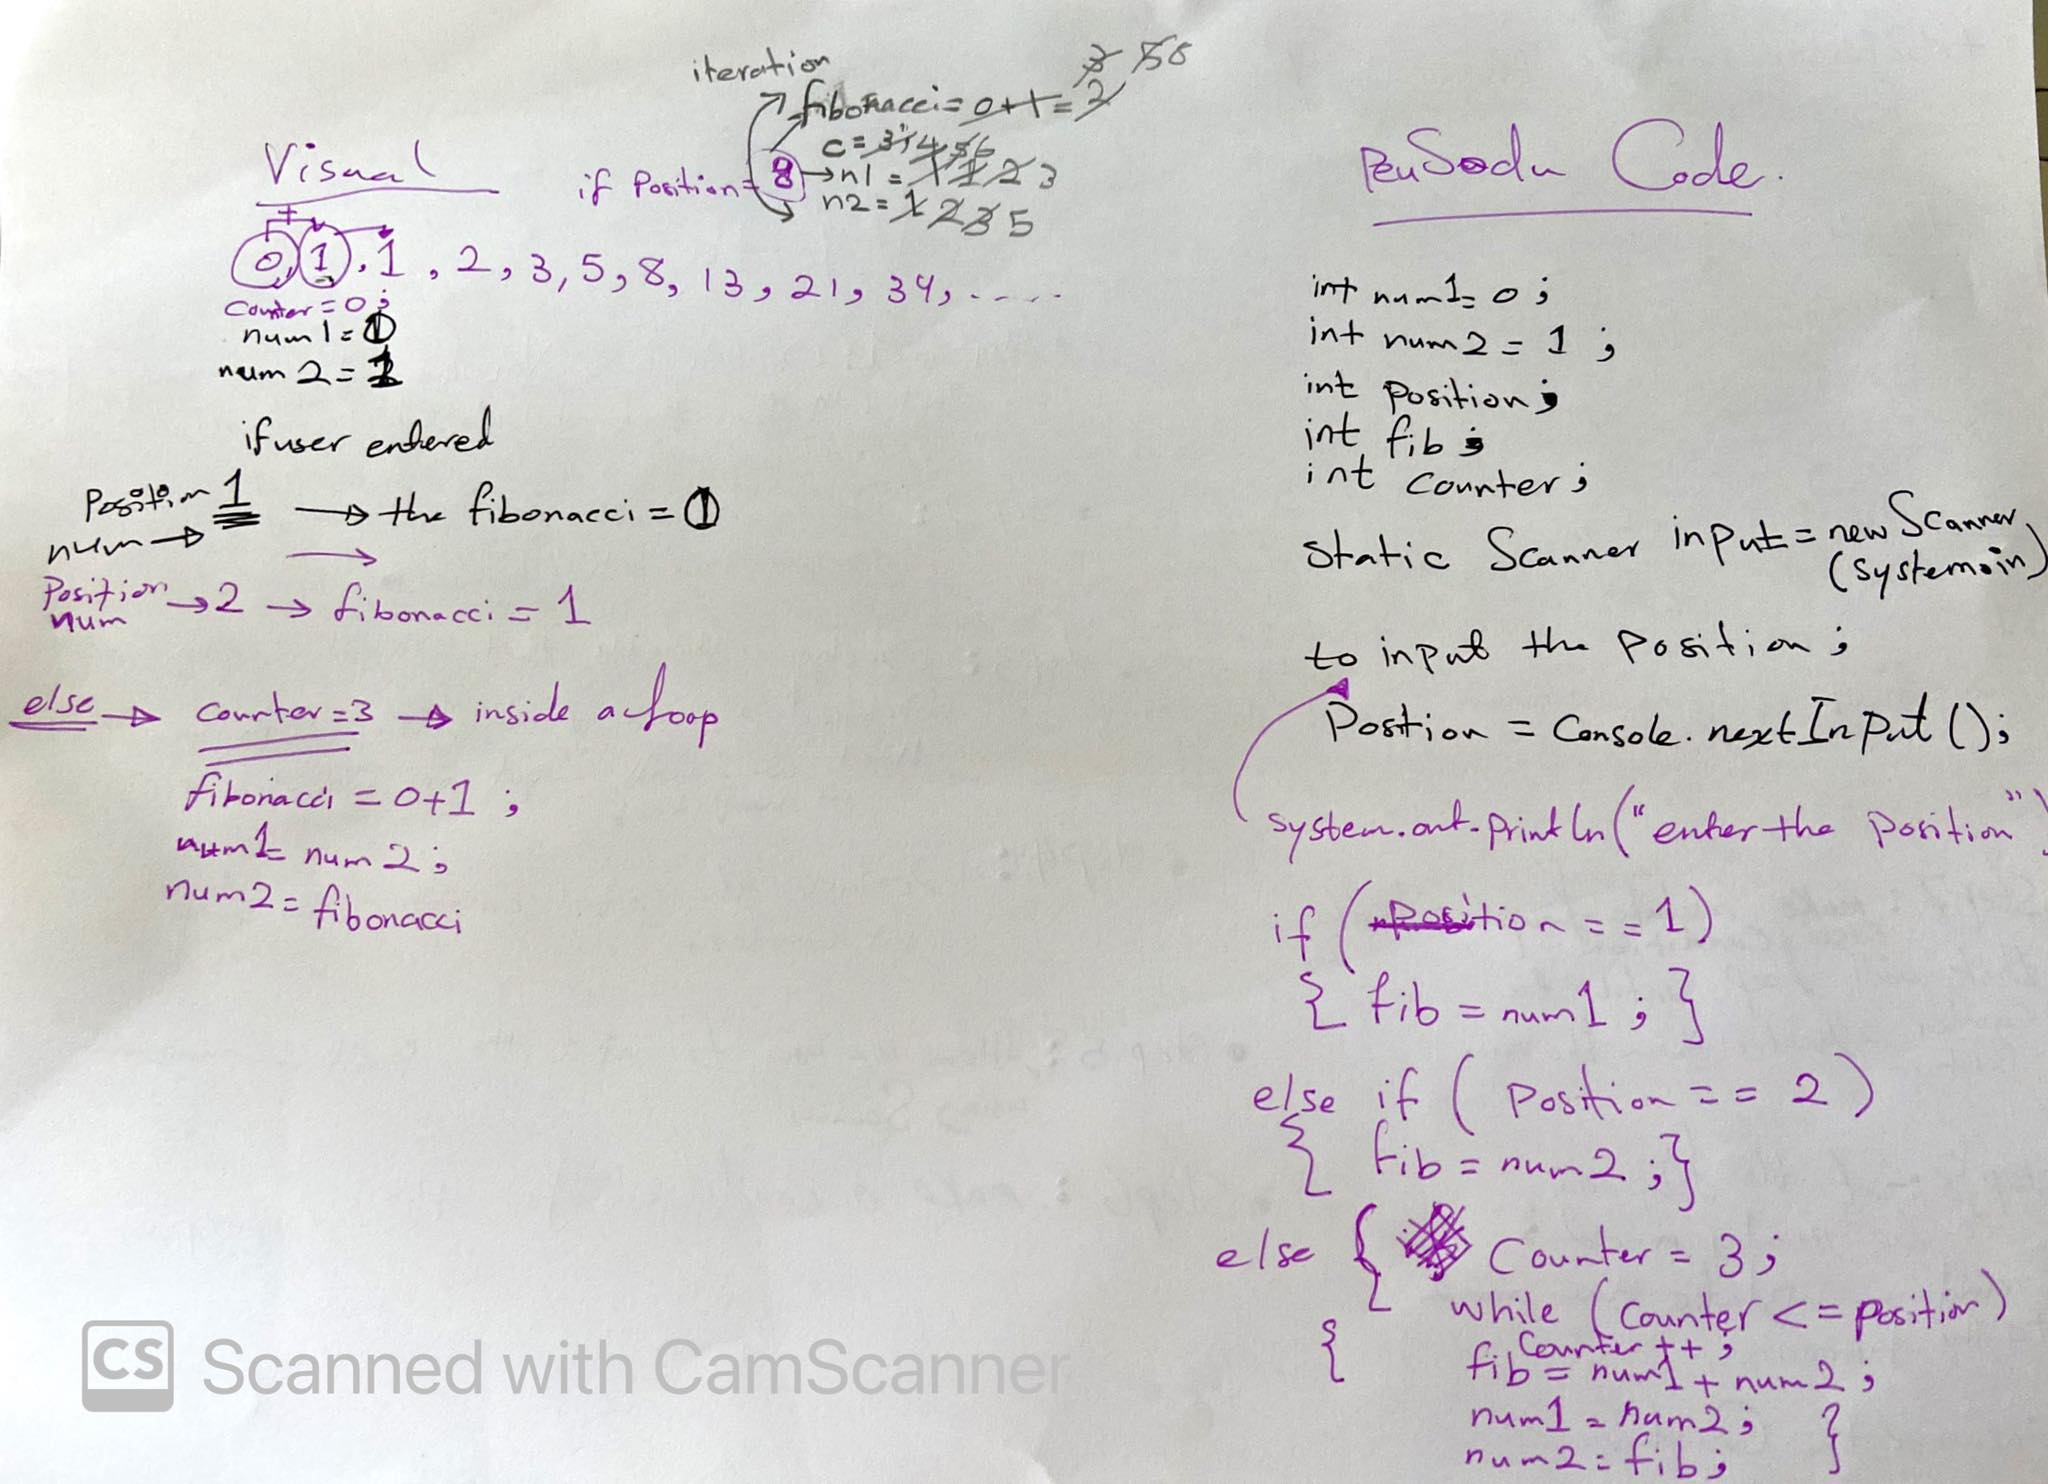 Visual
iteration
fibonacci = 0+1 = 2 3 5
c = 3 4 5 6
if Position = 8 → n1 = 1 1 2 3
n2 = 1 2 3 5
+
0, 1, 1, 2, 3, 5, 8, 13, 21, 34, .....
Counter = 0;
num1 =
num2 = 1
if user entered
Position 1 → the fibonacci =
num →
Position → 2 → fibonacci = 1
num
else → Counter = 3 → inside a loop
fibonacci = 0+1 ;
num1 = num2 ;
num2 = fibonacci
PeuSodu Code.
int num1 = 0 ;
int num2 = 1 ;
int Position ;
int fib ;
int Counter ;
Static Scanner input = new Scanner
(System.in)
to input the Position ;
Position = Console.nextInput();
system.out.println("enter the Position")
if (Position == 1)
{ fib = num1 ; }
else if ( Position == 2 )
{ fib = num2 ; }
else { Counter = 3 ;
while (Counter <= position)
{ Counter ++ ;
fib = num1 + num2 ;
num1 = num2 ; }
num2 = fib ;
CS Scanned with CamScanner